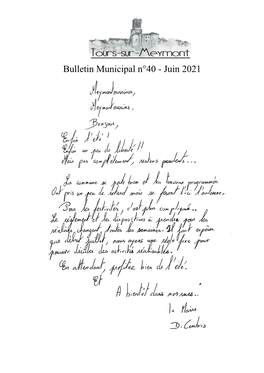 Tours-sur-Meymont
Bulletin Municipal n°40 - Juin 2021
Meymontoisiennes,
Meymontoisiens,
Bonjour,
Enfin l'été !
Enfin un peu de liberté !!
Mais pas complètement, restons prudents...
La commune se porte bien et les travaux programmés
Ont pris un peu de retard mais se feront d'ici l'automne.
Pour les festivités, c'est plus compliqué...
Le règlement et les dispositions à prendre pour les
réaliser, changent toutes les semaines. Il faut espérer
que début juillet, nous ayons une règle fixe pour
pouvoir décider des activités réalisables.
En attendant, profitez bien de l'été.
Et
A bientôt dans nos rues..
Le Maire
D. Cambris